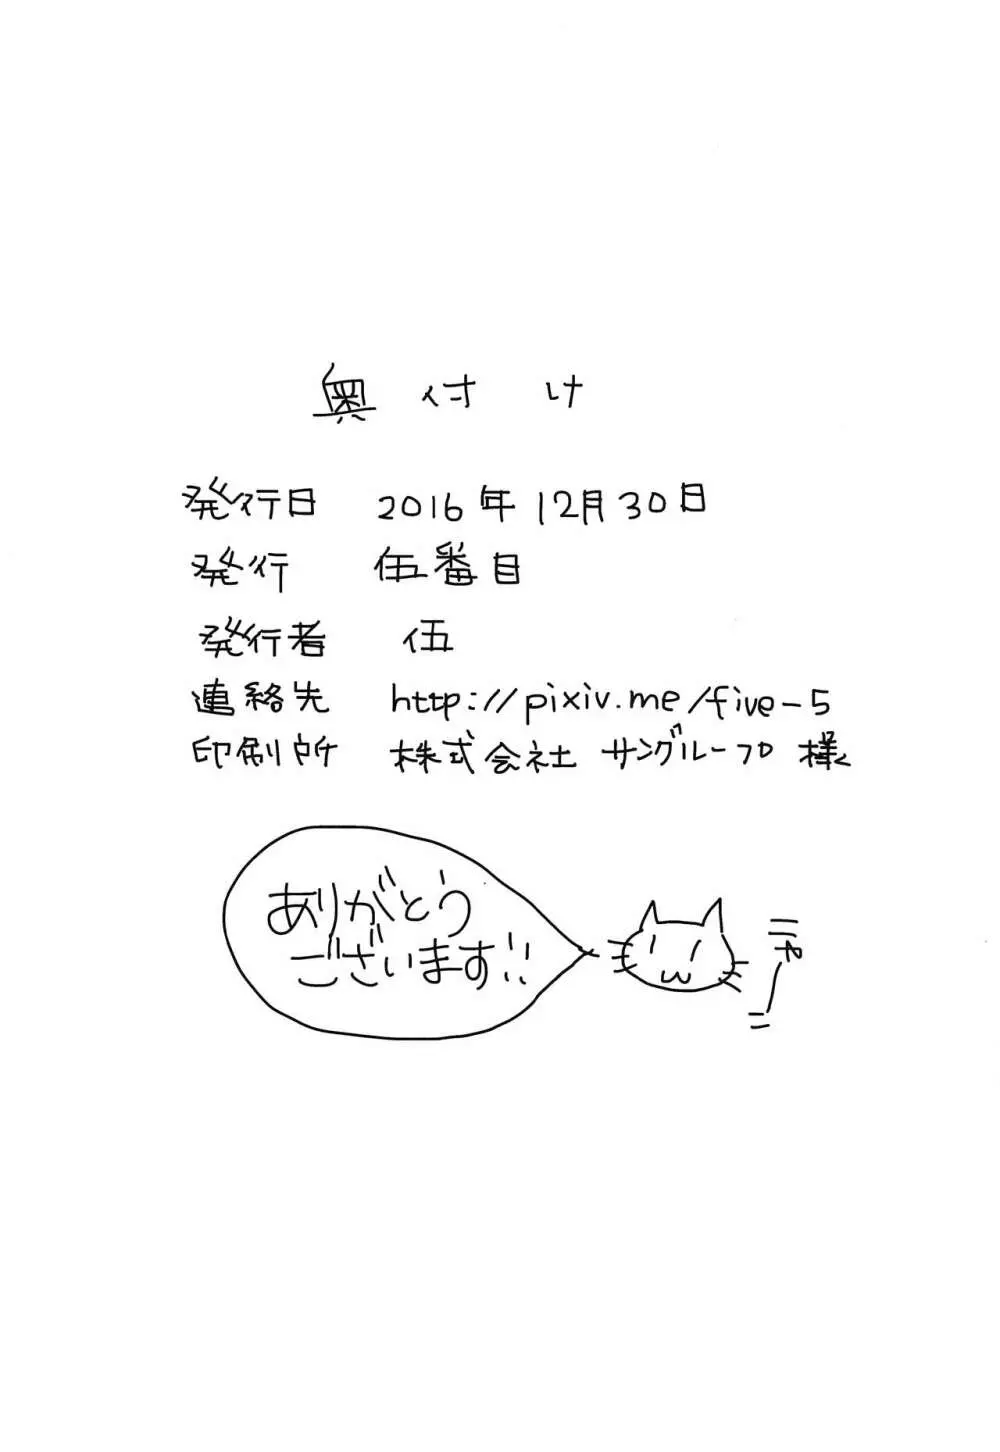 奥付け
発行日 2016年12月30日
発行 伍番目
発行者 伍
連絡先 http://pixiv.me/five-5
印刷所 株式会社 サングループ 様
ありがとう
ございます!!
ニャーニ